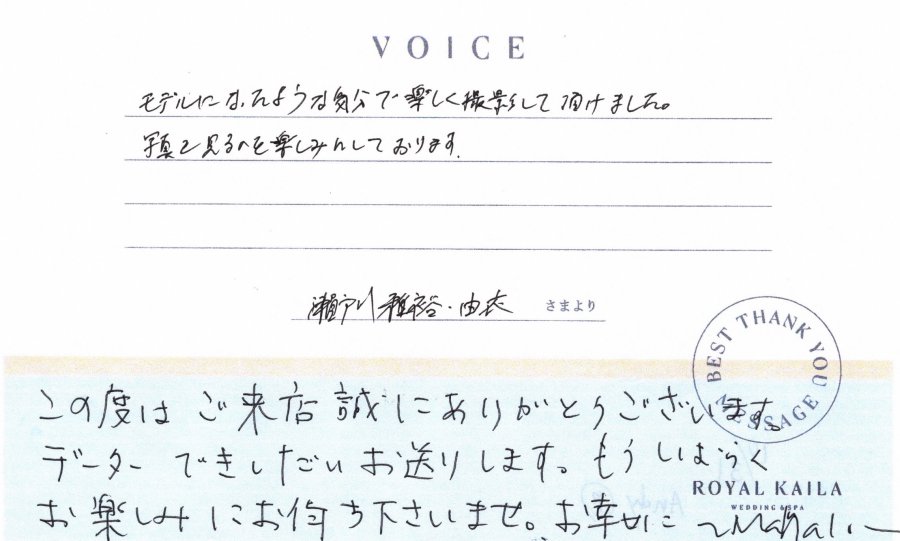 VOICE
モデルになったような気分で楽しく撮影して頂けました。
写真を見るのを楽しみにしております。
瀬戸川雅裕・由衣 さまより
BEST THANK YOU MESSAGE
この度はご来店誠にありがとうございます。
データーできしだいお送りします。もうしばらく
ROYAL KAILA
WEDDING & SPA
お楽しみにお待ち下さいませ。お幸せに